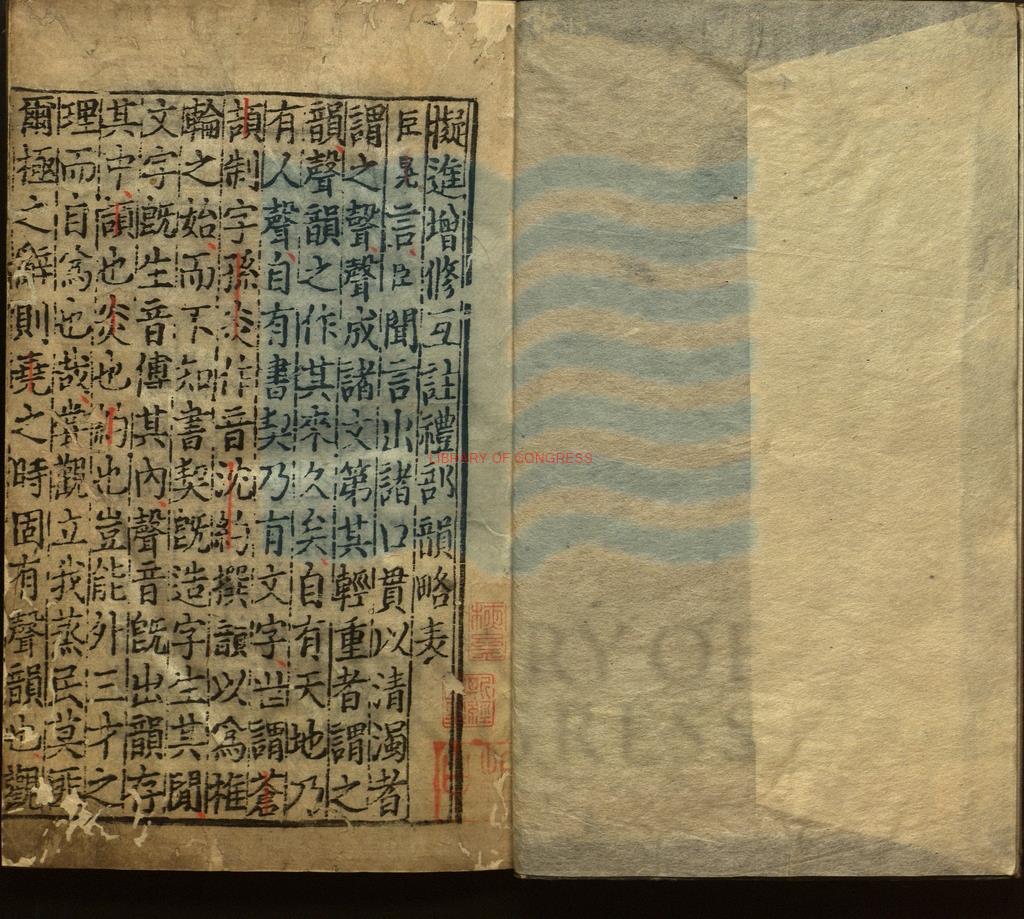 擬進增修互註禮部韻略表
臣晃言臣聞言出諸口貫以清濁者
謂之聲聲成諸文第其輕重者謂之
韻聲韻之作其來久矣自有天地乃
有人聲自有書契乃有文字世謂蒼
頡制字孫炎作音沈約撰韻以為椎
輪之始而不知書契既造字生其間
文字既生音傳其內聲音既出韻存
其中頡也炎也約也豈能外三才之
理而自為也哉嘗觀立我蒸民莫匪
爾極之辭則堯之時固有聲韻也觀
LIBRARY OF CONGRESS